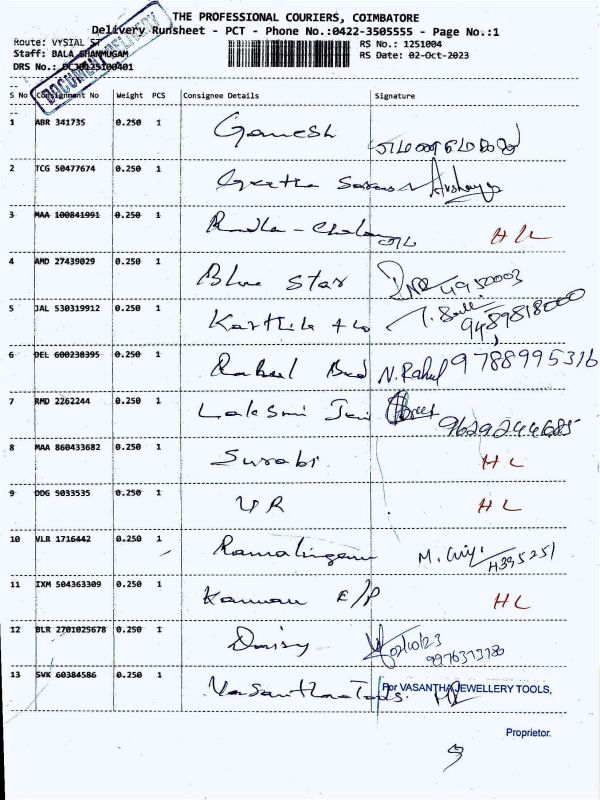 THE PROFESSIONAL COURIERS, COIMBATORE
Delivery Runsheet - PCT - Phone No.:0422-3505555 - Page No.:1
Route: VYSIAL ST RS No.: 1251004
Staff: BALA SHANMUGAM RS Date: 02-Oct-2023
DRS No.: DCJ0125100401
DOCUMENT DELIVERY
S No Consignment No Weight PCS Consignee Details Signature
1 ABR 341735 0.250 1 Ganesh
2 TCG 50477674 0.250 1 Geetha
3 MAA 100841991 0.250 1 H/L
4 AMD 27439029 0.250 1 Blue Star 4950003
5 JAL 530319912 0.250 1 Karthik 9489818000
6 DEL 600238395 0.250 1 Rahul N. Rahul 9788995316
7 RMD 2262244 0.250 1 9629244685
8 MAA 860433682 0.250 1 Surabi H L
9 DDG 5033535 0.250 1 V R H L
10 VLR 1716442 0.250 1 Ramalingam H395251
11 IXM 504363309 0.250 1 Kannan E/P H L
12 BLR 2701025678 0.250 1 Daisy 02/10/23
9976373780
13 SVK 60384586 0.250 1 Vasantha Tools. For VASANTHA JEWELLERY TOOLS,
Proprietor.